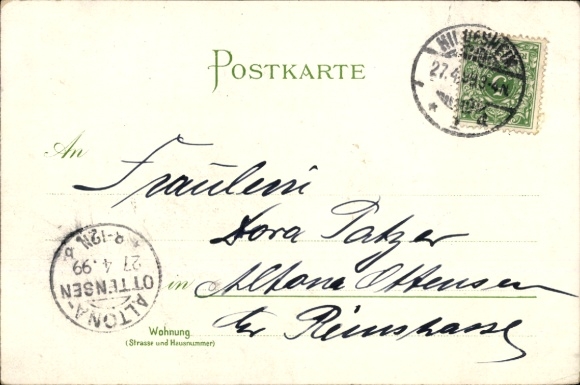 POSTKARTE
HILDESHEIM
27.4.99
An
Fräulein
Dora Patzer
in Altona Ottensen
Wohnung
(Strasse und Hausnummer)
ALTONA-
OTTENSEN
27 4.99
8-12N.